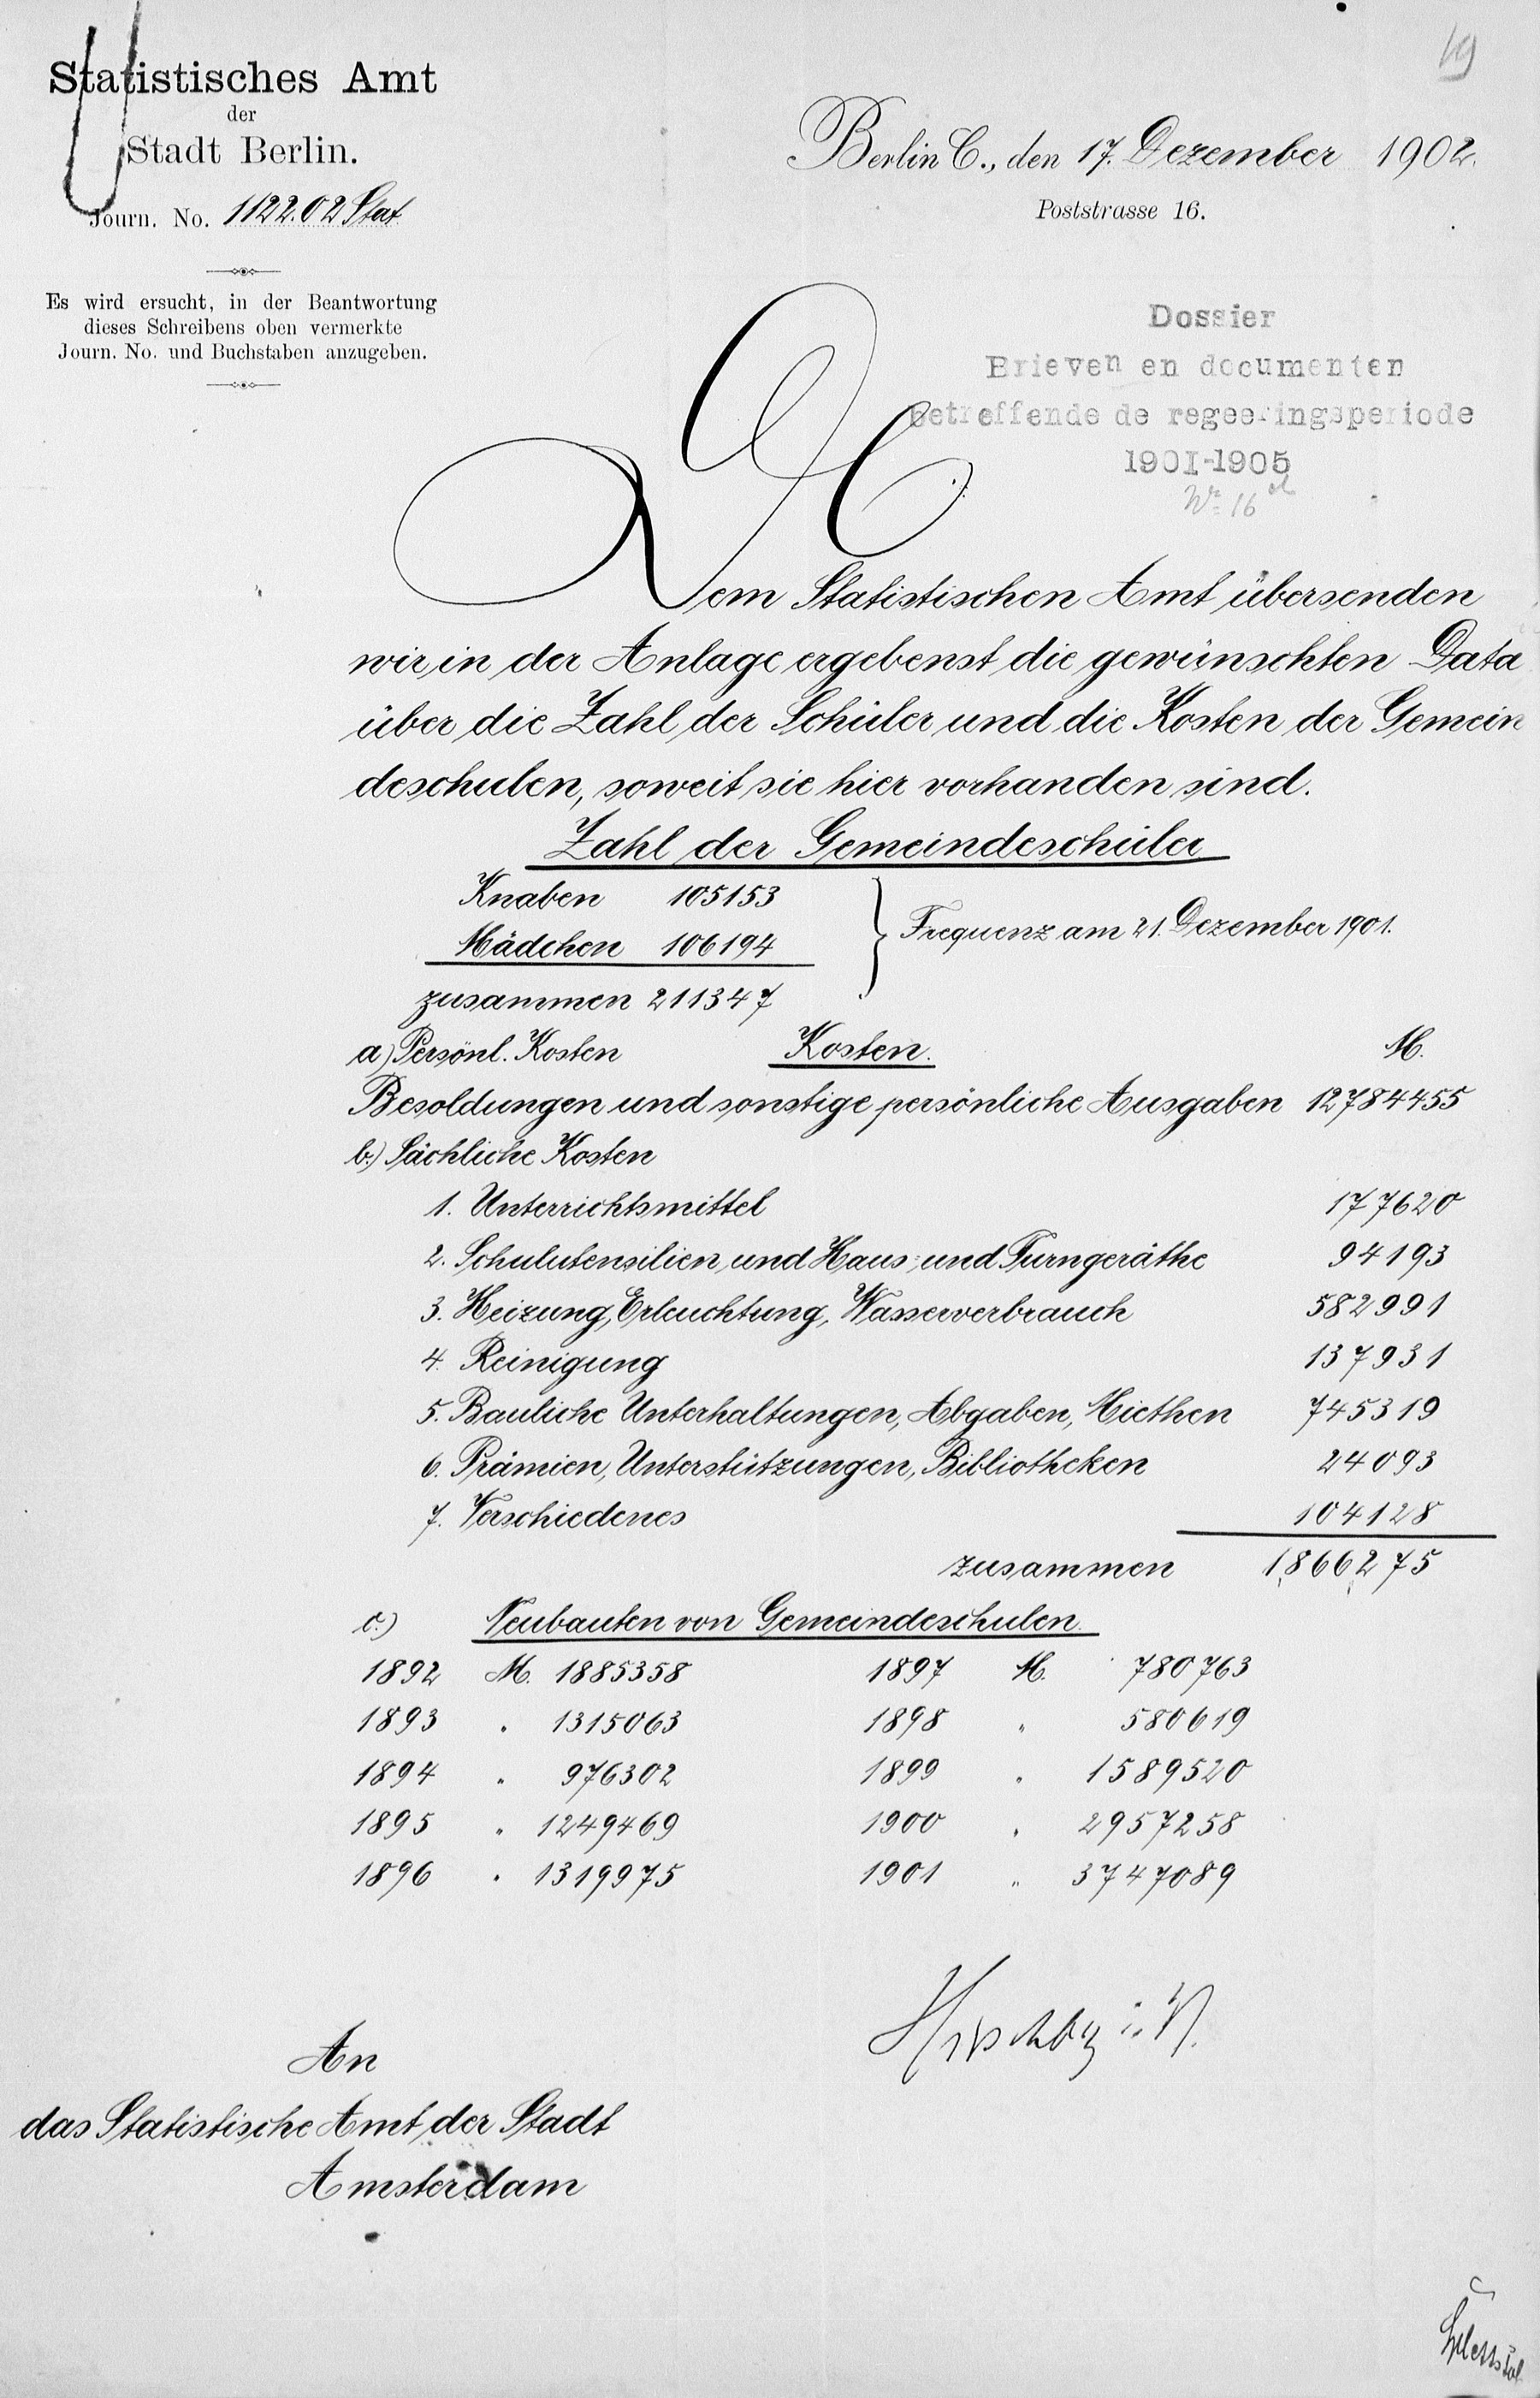 19
Statistisches Amt
der
Stadt Berlin.
Journ. No. 1122.02 Stat.
Es wird ersucht, in der Beantwortung
dieses Schreibens oben vermerkte
Journ. No. und Buchstaben anzugeben.
Berlin C., den 17. Dezember 1902.
Poststrasse 16.
Dossier
Brieven en documenten
betreffende de regeeringsperiode
1901-1905
No 16
Dem Statistischen Amt übersenden
wir in der Anlage ergebenst die gewünschten Data
über die Zahl der Schüler und die Kosten der Gemein
deschulen, soweit sie hier vorhanden sind.
Zahl der Gemeindeschüler
Knaben 105153
Mädchen 106194
Frequenz am 21. Dezember 1901.
zusammen 211347
a) Persönl. Kosten Kosten. M.
Besoldungen und sonstige persönliche Ausgaben 12784455
b.) Sächliche Kosten
1. Unterrichtsmittel 177620
2. Schulutensilien und Haus- und Turngeräthe 94193
3. Heizung, Erleuchtung, Wasserverbrauch 582991
4. Reinigung 137931
5. Bauliche Unterhaltungen, Abgaben, Miethen 745319
6. Prämien, Unterstützungen, Bibliotheken 24093
7. Verschiedenes 104128
zusammen 1866275
c.) Neubauten von Gemeindeschulen.
1892 M. 1885358 1897 M. 780763
1893 " 1315063 1898 " 580619
1894 " 976302 1899 " 1589520
1895 " 1249469 1900 " 2957258
1896 " 1319975 1901 " 3747089
An
das Statistische Amt der Stadt
Amsterdam